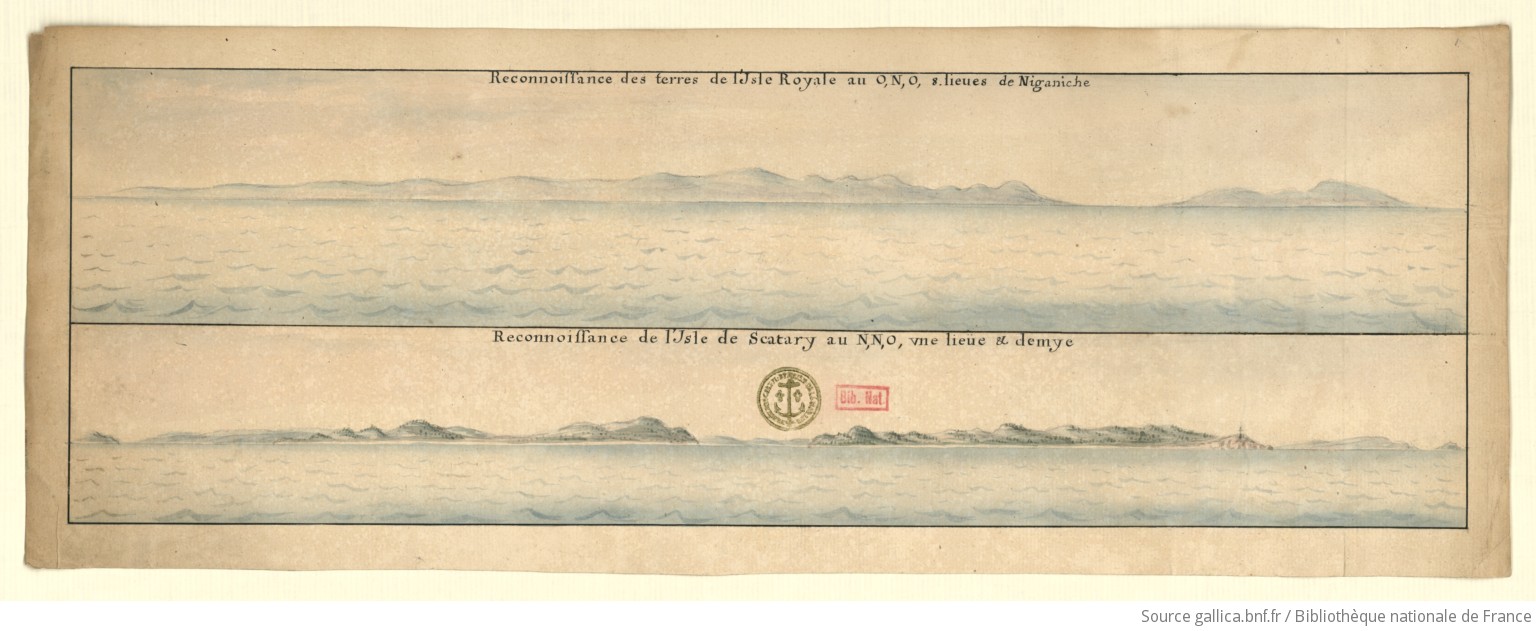 Reconnoiſſance des terres de l'Isle Royale au O,N,O, 8. lieues de Niganiche
Reconnoiſſance de l'Isle de Scatary au N,N,O, vne lieüe & demye
Bib. Nat.
Source gallica.bnf.fr / Bibliothèque nationale de France